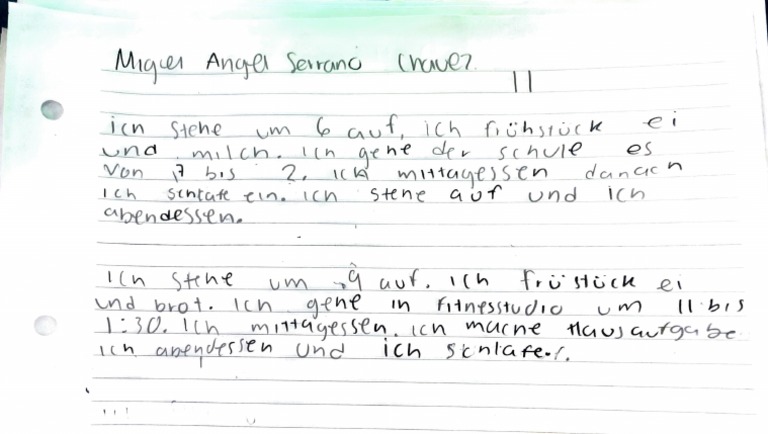 Miguel Angel Serrano Chavez
11
ich stehe um 6 auf, ich frühstück ei
und milch. Ich gehe der schule es
von 7 bis 2. Ich mittagessen danach
ich schlafe ein. ich stehe auf und ich
abendessen.
Ich stehe um 9 auf. Ich früstück ei
und brot. Ich gehe in fitnesstudio um 11 bis
1:30. Ich mittagessen. ich mache Hausaufgabe.
ich abendessen und ich schlafe.